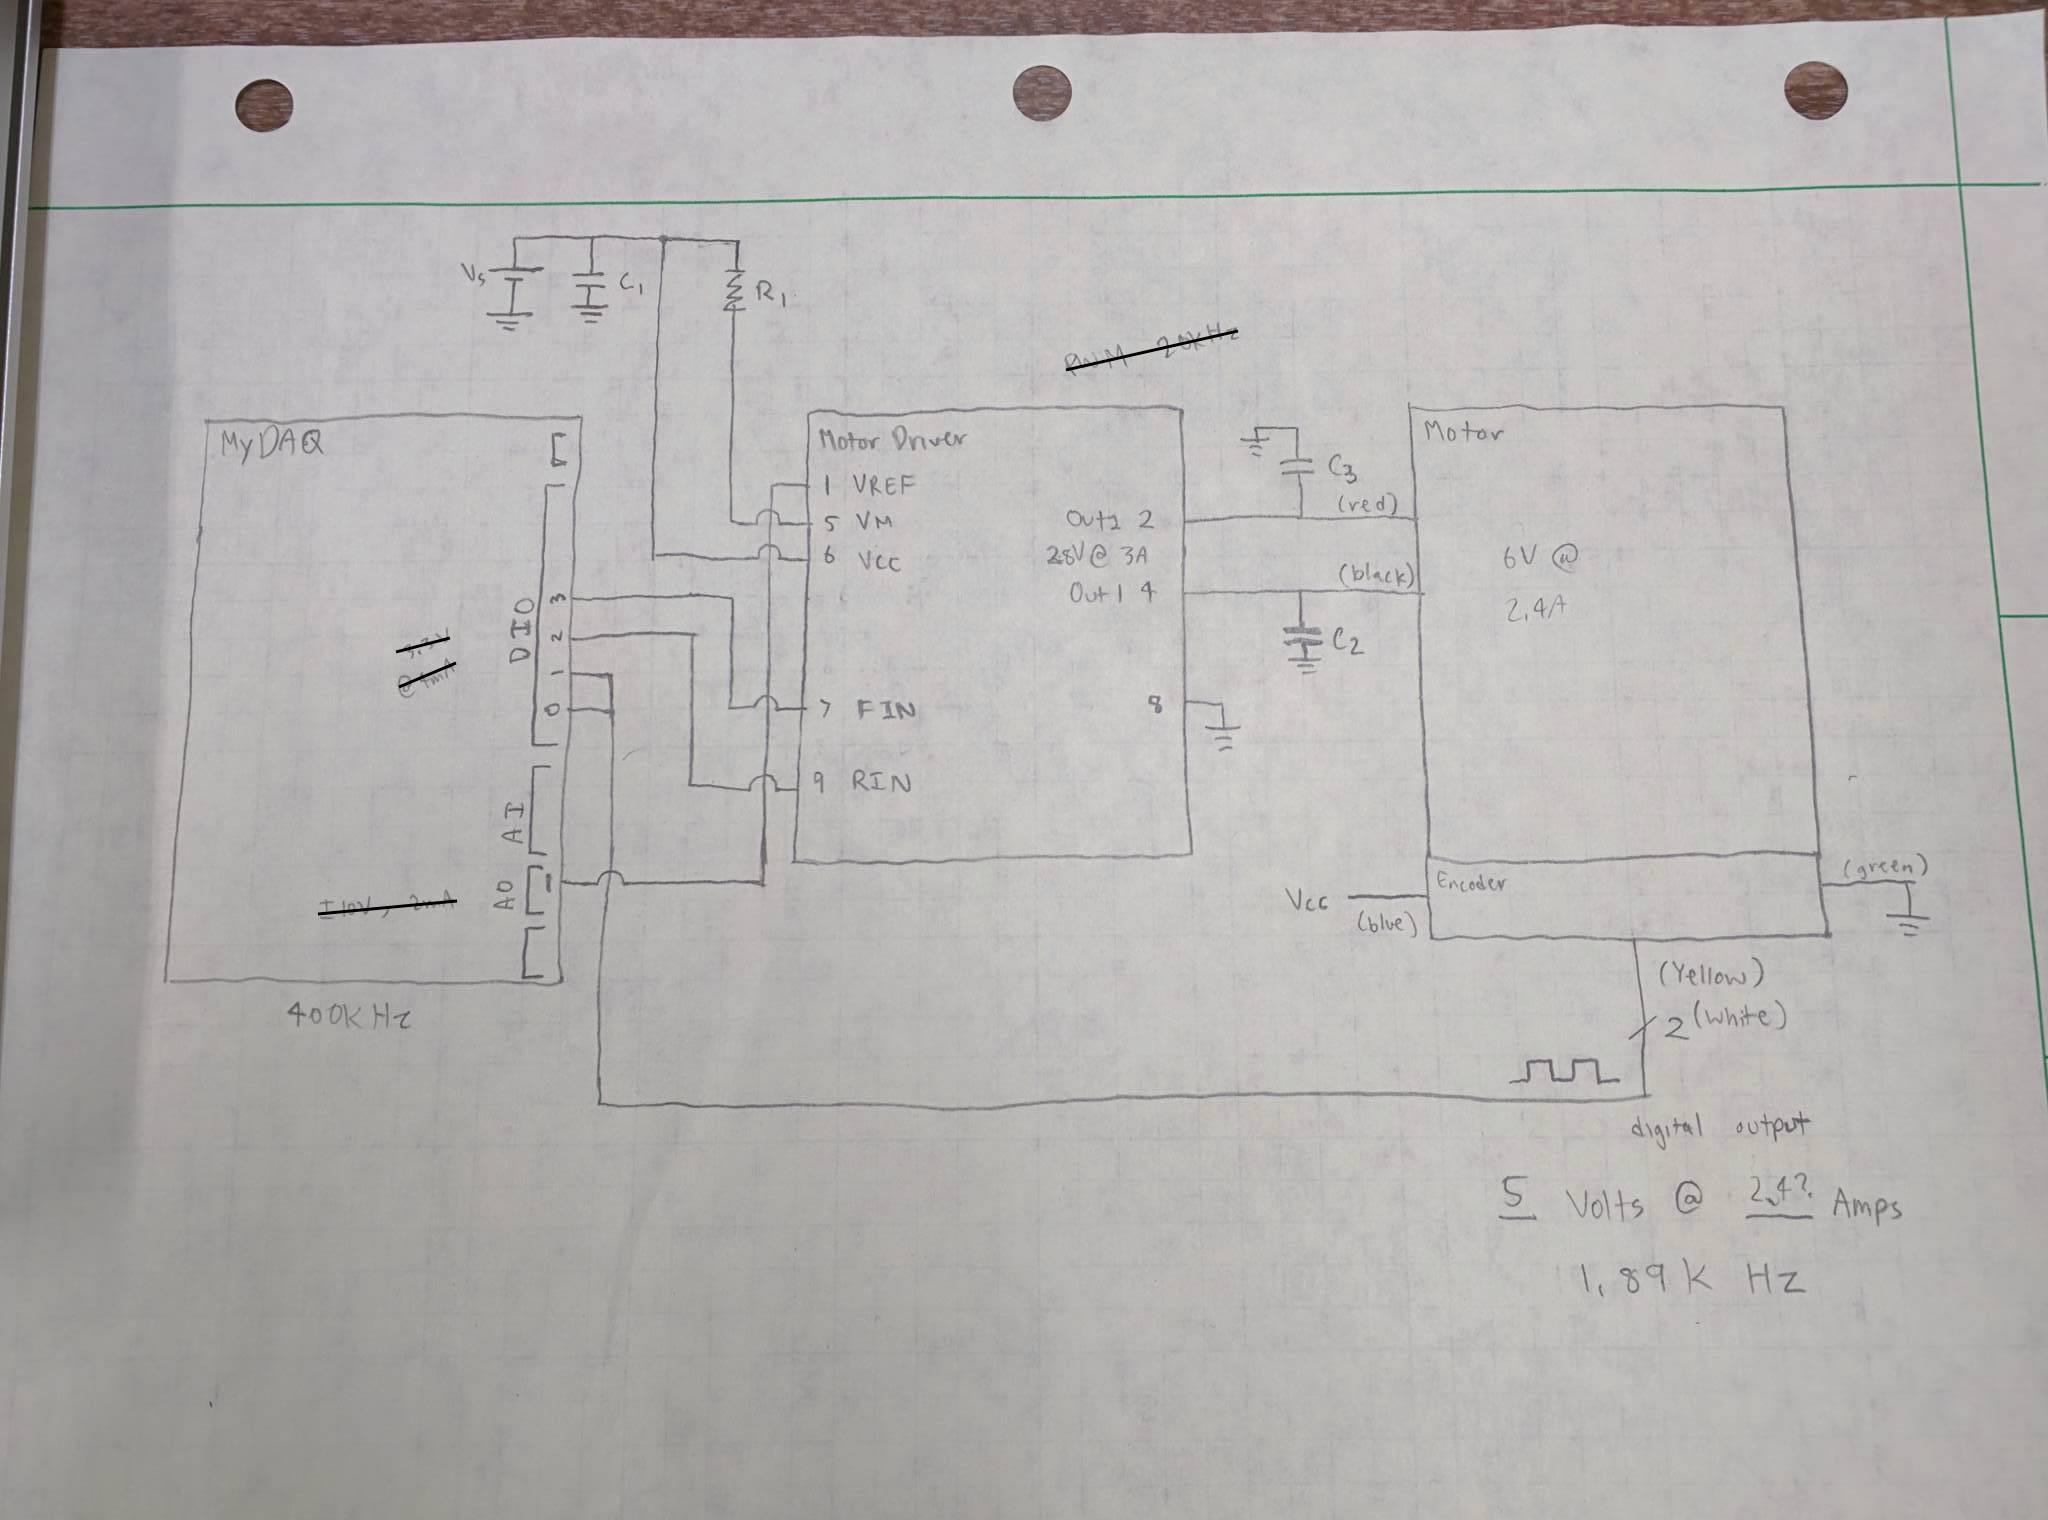 Vs
C1
R1
PWM 20KHz
MyDAQ
DIO
3
2
1
0
3.3V
@ 4mA
AI
AO
±10V, 2mA
400KHz
Motor Driver
1 VREF
5 VM
6 VCC
7 FIN
9 RIN
Out2 2
28V @ 3A
Out1 4
8
C3
(red)
(black)
C2
Motor
6V @
2.4A
Encoder
Vcc
(blue)
(green)
(Yellow)
2 (White)
digital output
5 Volts @ 2.4? Amps
1.89K Hz